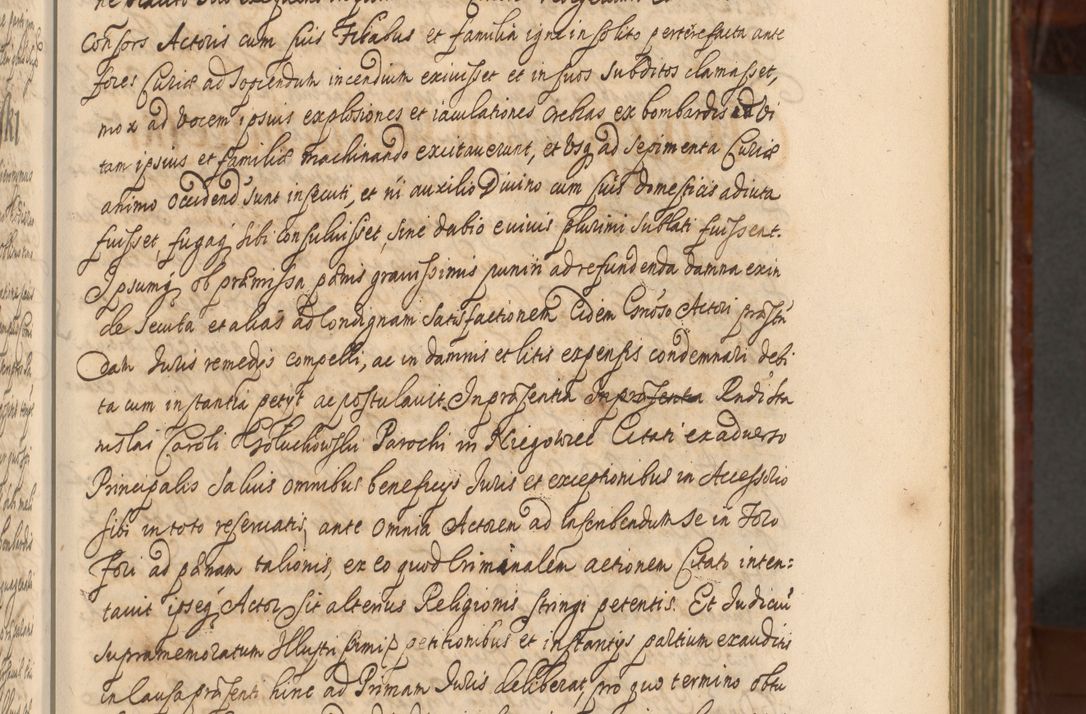 Consors Actoris cum suis Filiabus et familia igne insolito perterrefacta ante
fores Curiæ ad sopiendum incendium exivisset et in suos subditos clamasset,
mox ad vocem ipsius explosiones et iaculationes crebras ex bombardis ad vi
tam ipsius et familiæ machinando excitaverunt, et usq ad sepimenta Curiæ
animo occidend sunt insecuti, et ni auxilio Divino cum suis domesticis adiuta
fuisset, fugaq sibi consuluisset, sine dubio e vivis plurimi sublati fuissent.
Ipsumq ob præmissa pænis gravissimis puniri ad refundenda damna exin
de secuta et alias ad condignam satisfactionem eidem Gnoso Actori præstn
dam Iuris remedys compelli, ac in damnis et litis expensis condemnari debi
ta cum instantia petyt ac postulavit. In præsentia Rndi Sta
nislai Caroli Gołuchowski Parochi in Niegowiec Citati ex adverso
Principalis salvis omnibus beneficys Iuris et exceptionibus in Accessorio
sibi in toto reservatis, ante omnia Actorem ad inscribendum se in Foro
fori ad pænam talionis, ex eo quod Criminalem actionem Citato inten:
tavit ipseq Actor sit alterius Religionis stringi petentis. Et Iudiciū
supramemoratum Illustrissimi petitionibus et instantys partium exauditis
in causa præsenti hinc ad Primam Iuris deliberat, pro quo termino obtu